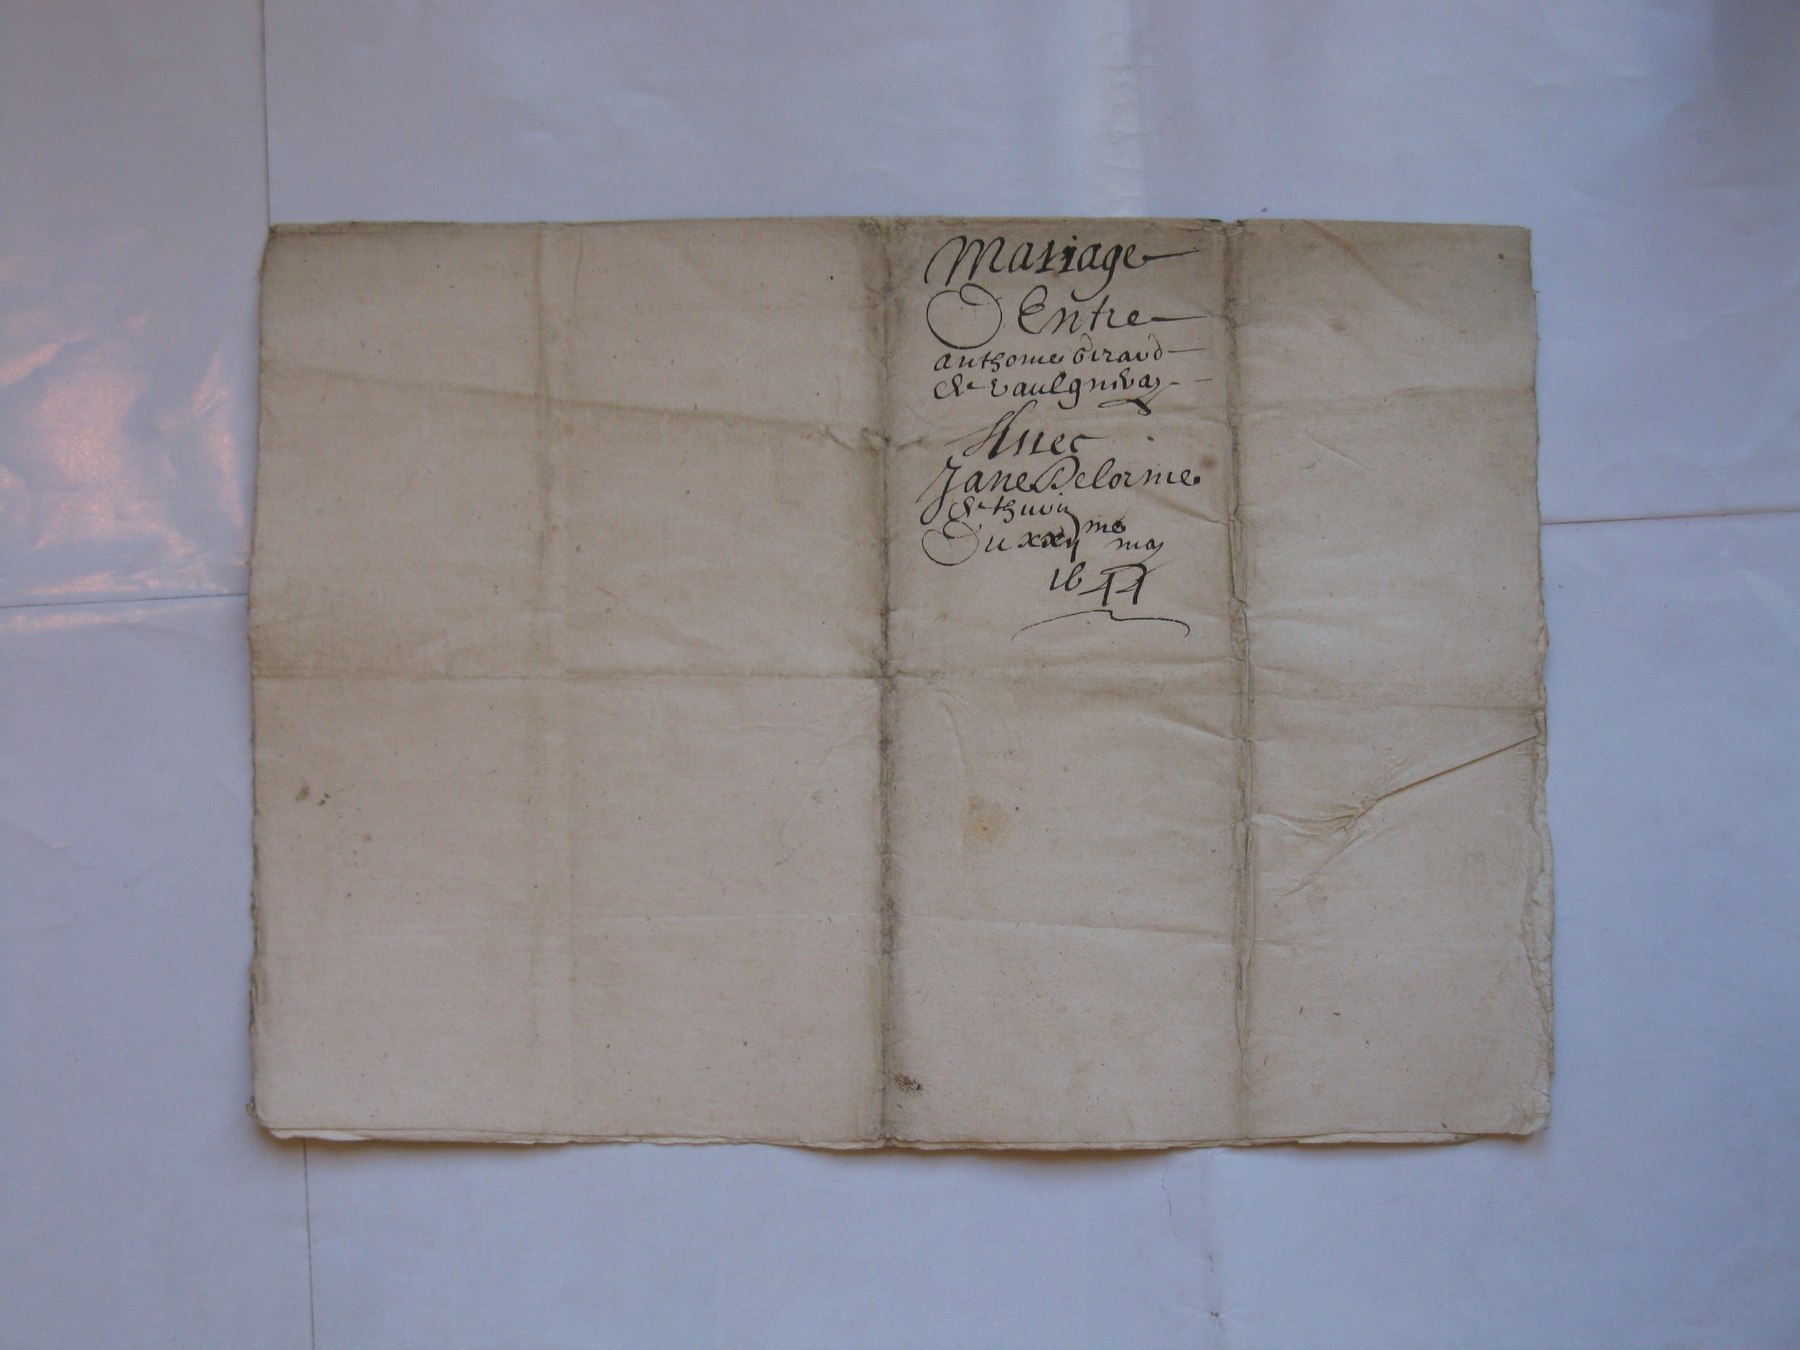 Mariage
Entre
anthoine Giraud
de vaulgnivay
Auec
Jane Delorme
de thurin
Du xxij me may
1644